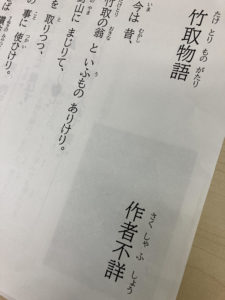 たけ とり もの がたり
竹取物語
さく しゃ ふ しょう
作者不詳
いま むかし
今は 昔、
たけとり おきな う
竹取の翁 と いふもの ありけり。
やま
山に まじりて、
と
を 取りつつ、
こと つかい
の 事に 使ひけり。
ば